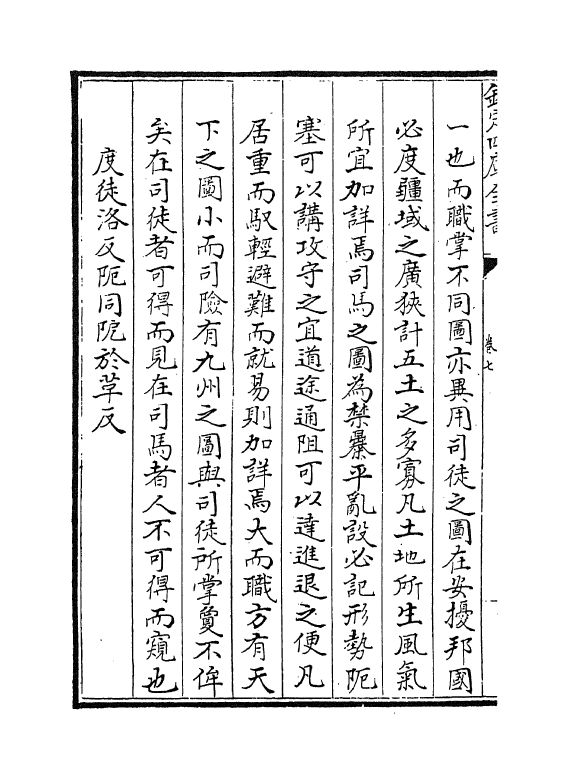 欽定四庫全書
卷七
一也而職掌不同圖亦異用司徒之圖在安擾邦國
必度疆域之廣狹計五土之多寡凡土地所生風氣
所宜加詳焉司馬之圖為禁暴平亂設必記形勢阨
塞可以講攻守之宜道途通阻可以達進退之便凡
居重而馭輕避難而就易則加詳焉大而職方有天
下之圖小而司險有九州之圖與司徒所掌敻不侔
矣在司徒者可得而見在司馬者人不可得而窺也
度徒洛反阨同阸於革反